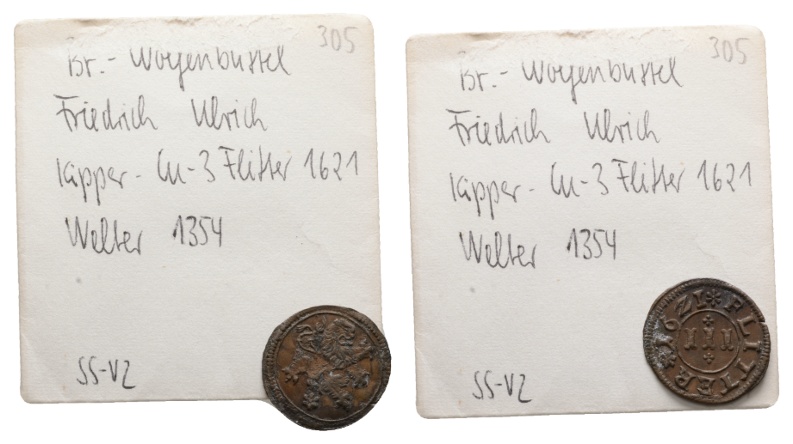 305
Br.- Wolfenbüttel
Friedrich Ulrich
Kipper- Cu-3 Flitter 1621
Welter 1354
SS-VZ
305
Br.- Wolfenbüttel
Friedrich Ulrich
Kipper- Cu-3 Flitter 1621
Welter 1354
SS-VZ
1621 FLITTER
III